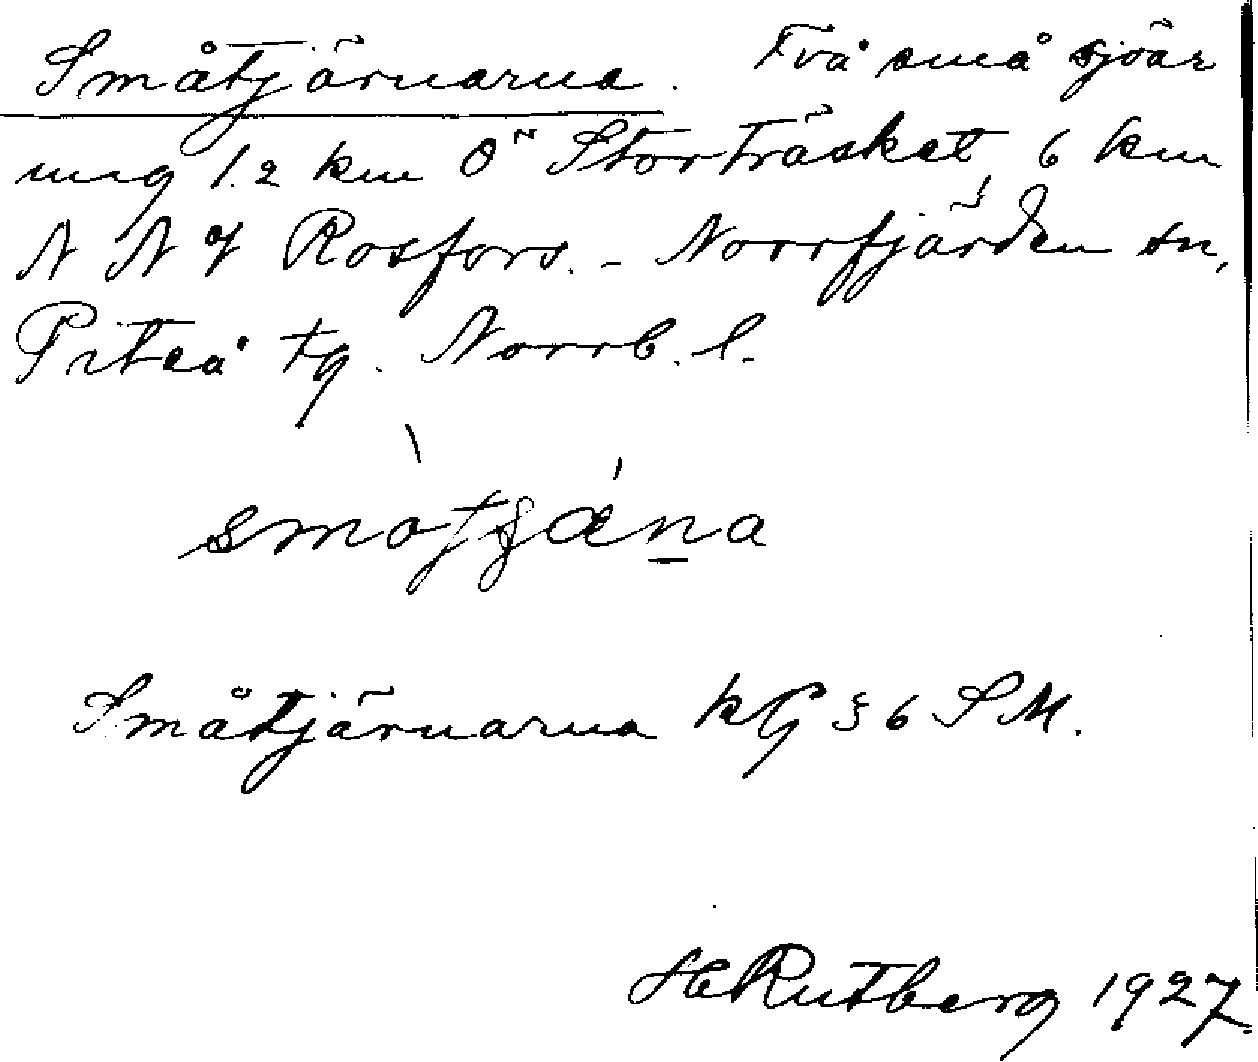 Småtjärnarna. Två små sjöar
ung 1.2 km Ö Storträsket, 6 km
N N Rosfors. - Norrfjärden sn,
Piteå tg. Norrb. l.
småtjärnarna
Småtjärnarna kG § 6 SM.
H Rutberg 1927.